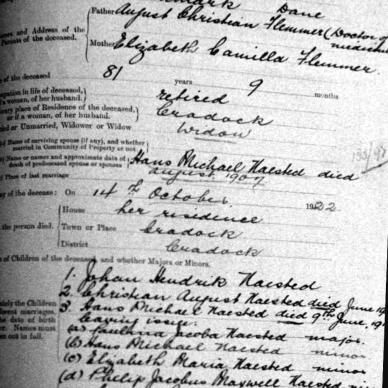 Dane
Father August Christian Flemmer (Doctor of
Names and Address of the
Parents of the deceased.
Mother Elizabeth Camilla Flemmer
of the deceased 81 years 9 months
Occupation in life of deceased,
a woman, of her husband.) retired
ordinary place of Residence of the deceased,
or if a woman, of her husband.) Cradock
Married or Unmarried, Widower or Widow Widow
Name of surviving spouse (if any), and whether
married in Community of Property or not
Name or names and approximate date of
of predeceased spouse or spouses Hans Michael Haested died
August 1907
Place of last marriage
of the decease: On 14th October. 1922
House her residence
the person died. Town or Place Cradock
District Cradock
of Children of the deceased, and whether Majors or Minors.
1. Johan Hendrik Haested
2. Christian August Haested died June
3. Hans Michael Haested died 9th June, 19
leaving issue:
(a) Jacoba Haested major.
(b) Hans Michael Haested minor
(c) Elizabeth Maria Haested minor
(d) Philip Jacobus Maxwell Haested